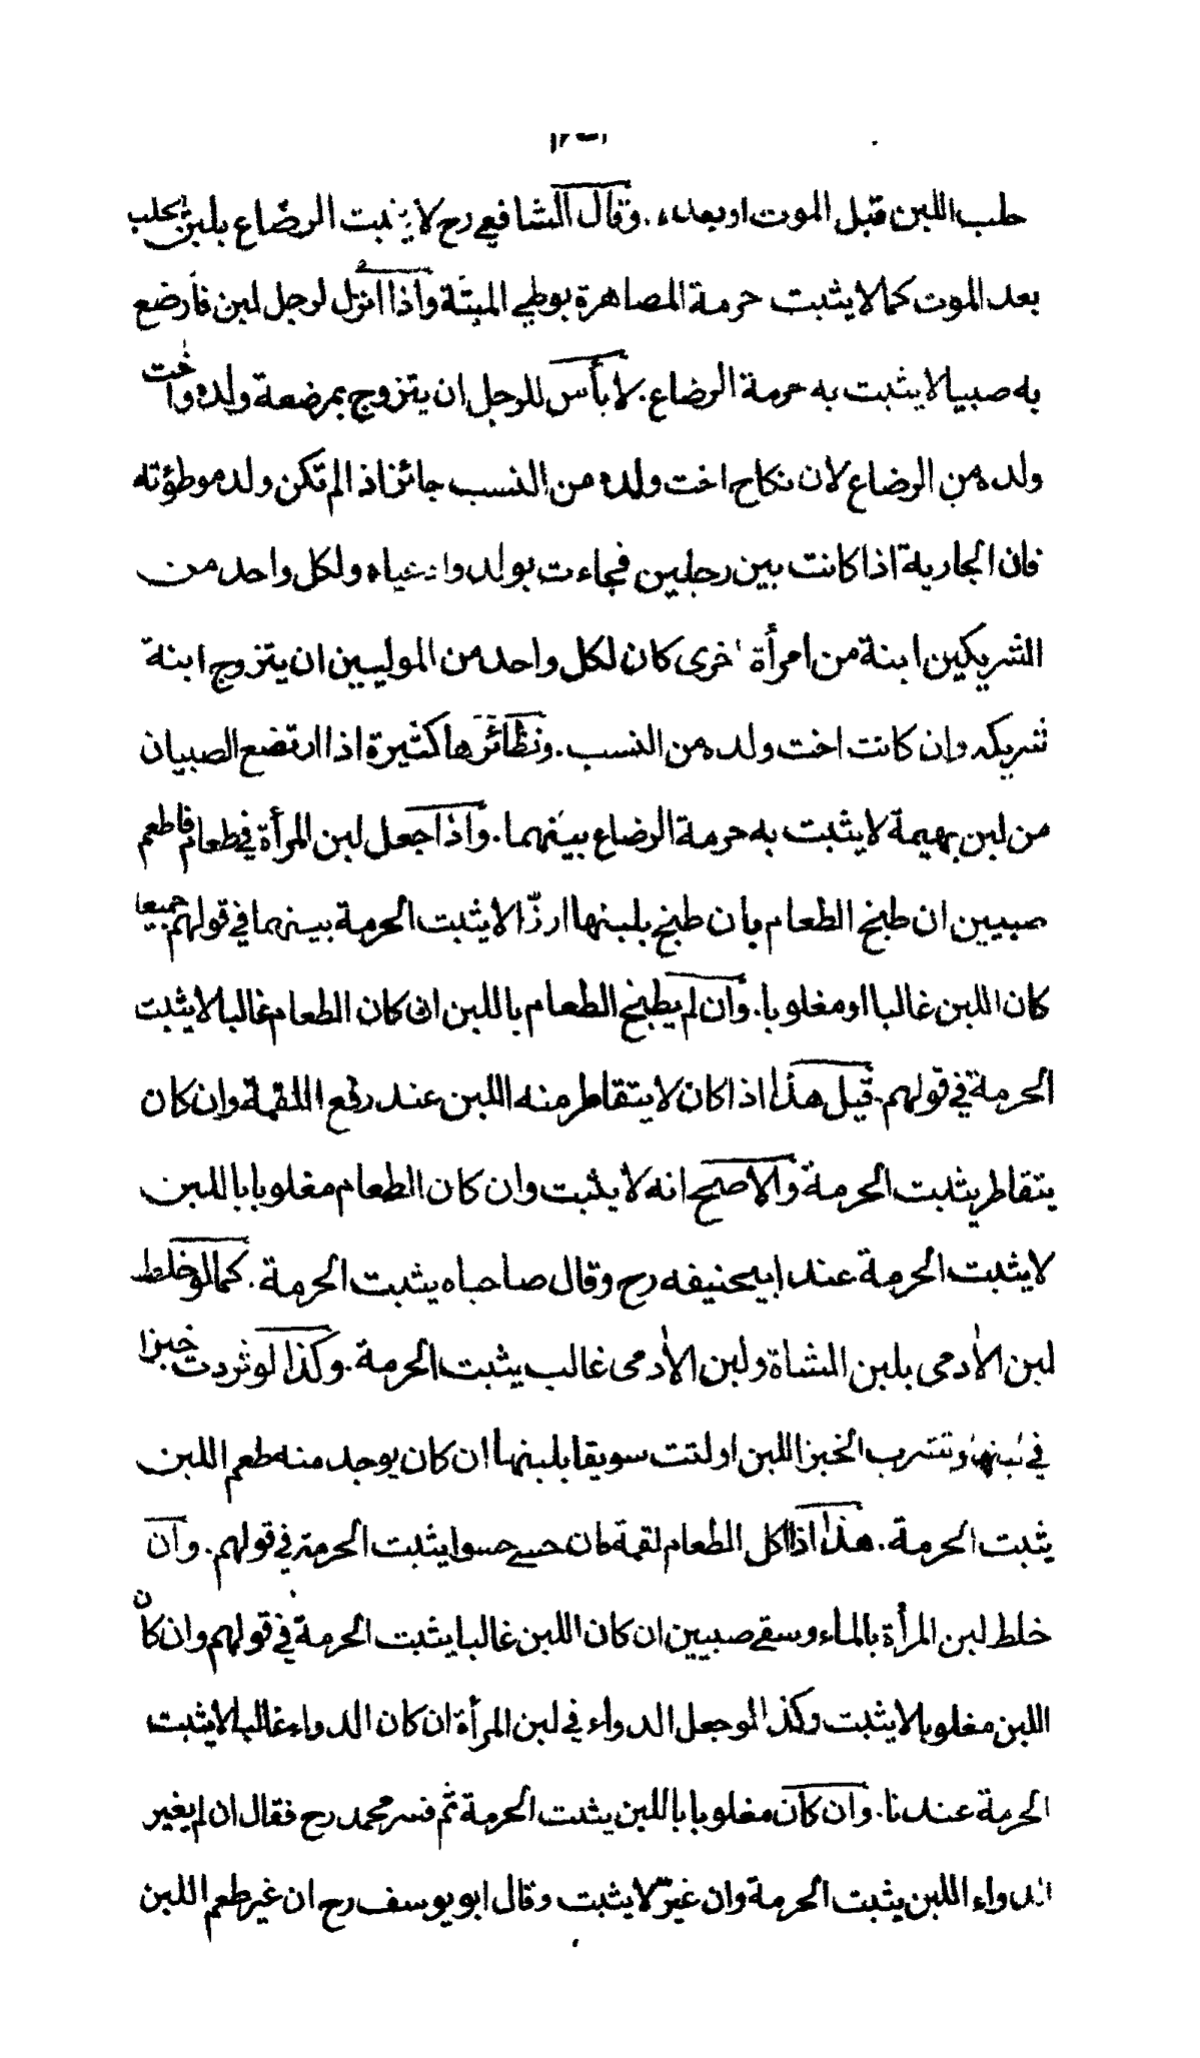 حلب اللبن قبل الموت او بعده . وقال الشافعي رح لا يثبت الرضاع بلبن يحلب
بعد الموت كما لا يثبت حرمة المصاهرة بوطي الميتة واذا انزل لرجل لبن فارضع
به صبيا لا يثبت به حرمة الرضاع . لا بأس للرجل ان يتزوج بمرضعة ولده واخت
ولده من الرضاع لان نكاح اخت ولده من النسب جائز اذا لم تكن ولد موطؤته
فان الجارية اذا كانت بين رجلين فجاءت بولد وادعياه ولكل واحد من
الشريكين ابنة من امرأة اخرى كان لكل واحد من الموليين ان يتزوج ابنة
شريكه وان كانت اخت ولده من النسب . ونظائرها كثيرة اذا ارتضع الصبيان
من لبن بهيمة لا يثبت به حرمة الرضاع بينهما . واذا جعل لبن المرأة في طعام فاطعم
صبيين ان طبخ الطعام بان طبخ بلبنها ارزّا لا يثبت الحرمة بينهما في قولهم جميعا
كان اللبن غالبا او مغلوبا . وان لم يطبخ الطعام باللبن ان كان الطعام غالبا لا يثبت
الحرمة في قولهم . قيل هذا اذا كان لا يتقاطر منه اللبن عند رفع اللقمة وان كان
يتقاطر يثبت الحرمة والاصح انه لا يثبت وان كان الطعام مغلوبا باللبن
لا يثبت الحرمة عند ابيحنيفه رح وقال صاحباه يثبت الحرمة . كما لو خلط
لبن الأدمى بلبن الشاة ولبن الأدمى غالب يثبت الحرمة . وكذا لو ثردت خبزا
في لبنها وتشرب الخبز اللبن او لتت سويقا بلبنها ان كان يوجد منه طعم اللبن
يثبت الحرمة . هذا اذا اكل الطعام لقمة فان حسى حسوا يثبت الحرمة في قولهم . وان
خلط لبن المرأة بالماء وسقى صبيين ان كان اللبن غالبا يثبت الحرمة في قولهم وان كان
اللبن مغلوبا لا يثبت وكذا لو جعل الدواء في لبن المرأة ان كان الدواء غالبا لا يثبت
الحرمة عندنا . وان كان مغلوبا باللبن يثبت الحرمة ثم فسر محمد رح فقال ان لم يغير
الدواء اللبن يثبت الحرمة وان غيّر لا يثبت وقال ابو يوسف رح ان غير طعم اللبن